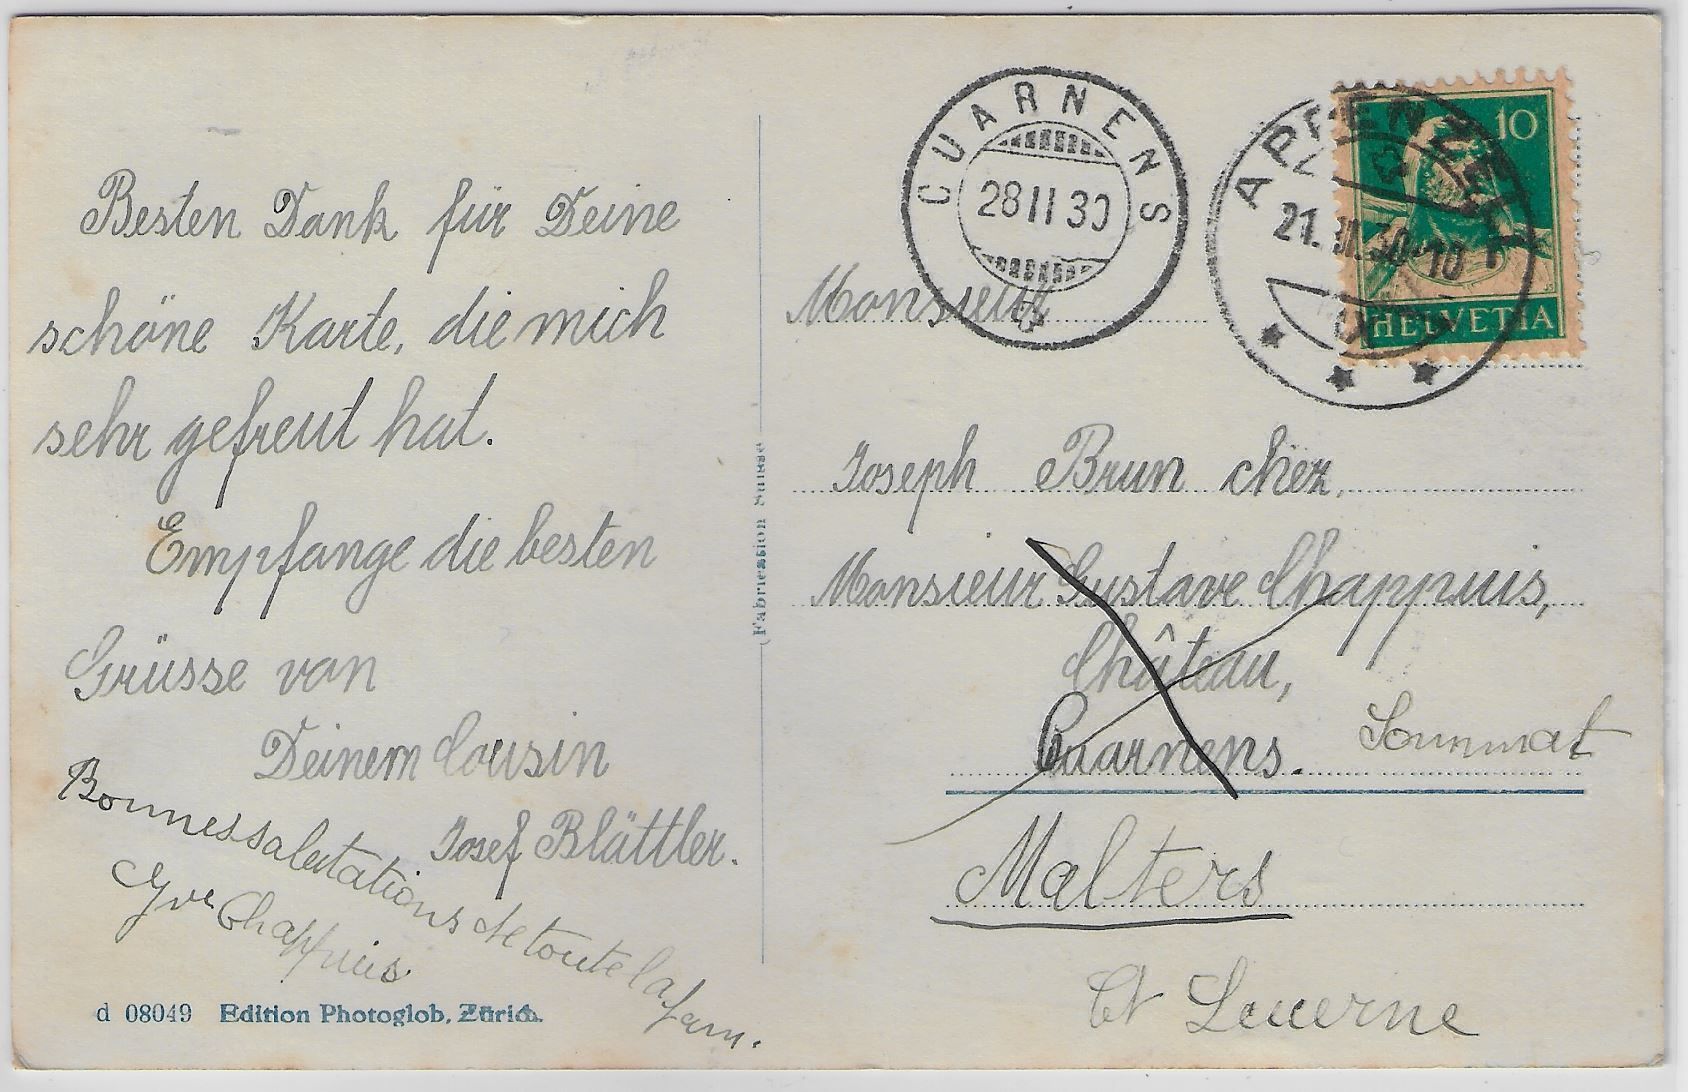 Besten Dank für Deine
schöne Karte, die mich
sehr gefreut hat.
Empfange die besten
Grüsse von
Deinem Cousin
Josef Blättler.
Bonnes salutations de toute la fam.
Chappuis
d 08049 Edition Photoglob, Zürich.
(Fabrication Suisse)
CUARNENS
28 II 30
APPENZELL
21. 30-10
10
HELVETIA
Monsieur
Joseph Brun chez,
Monsieur Gustave Chappuis,
Château,
Cuarnens.
Malters
Ct Lucerne